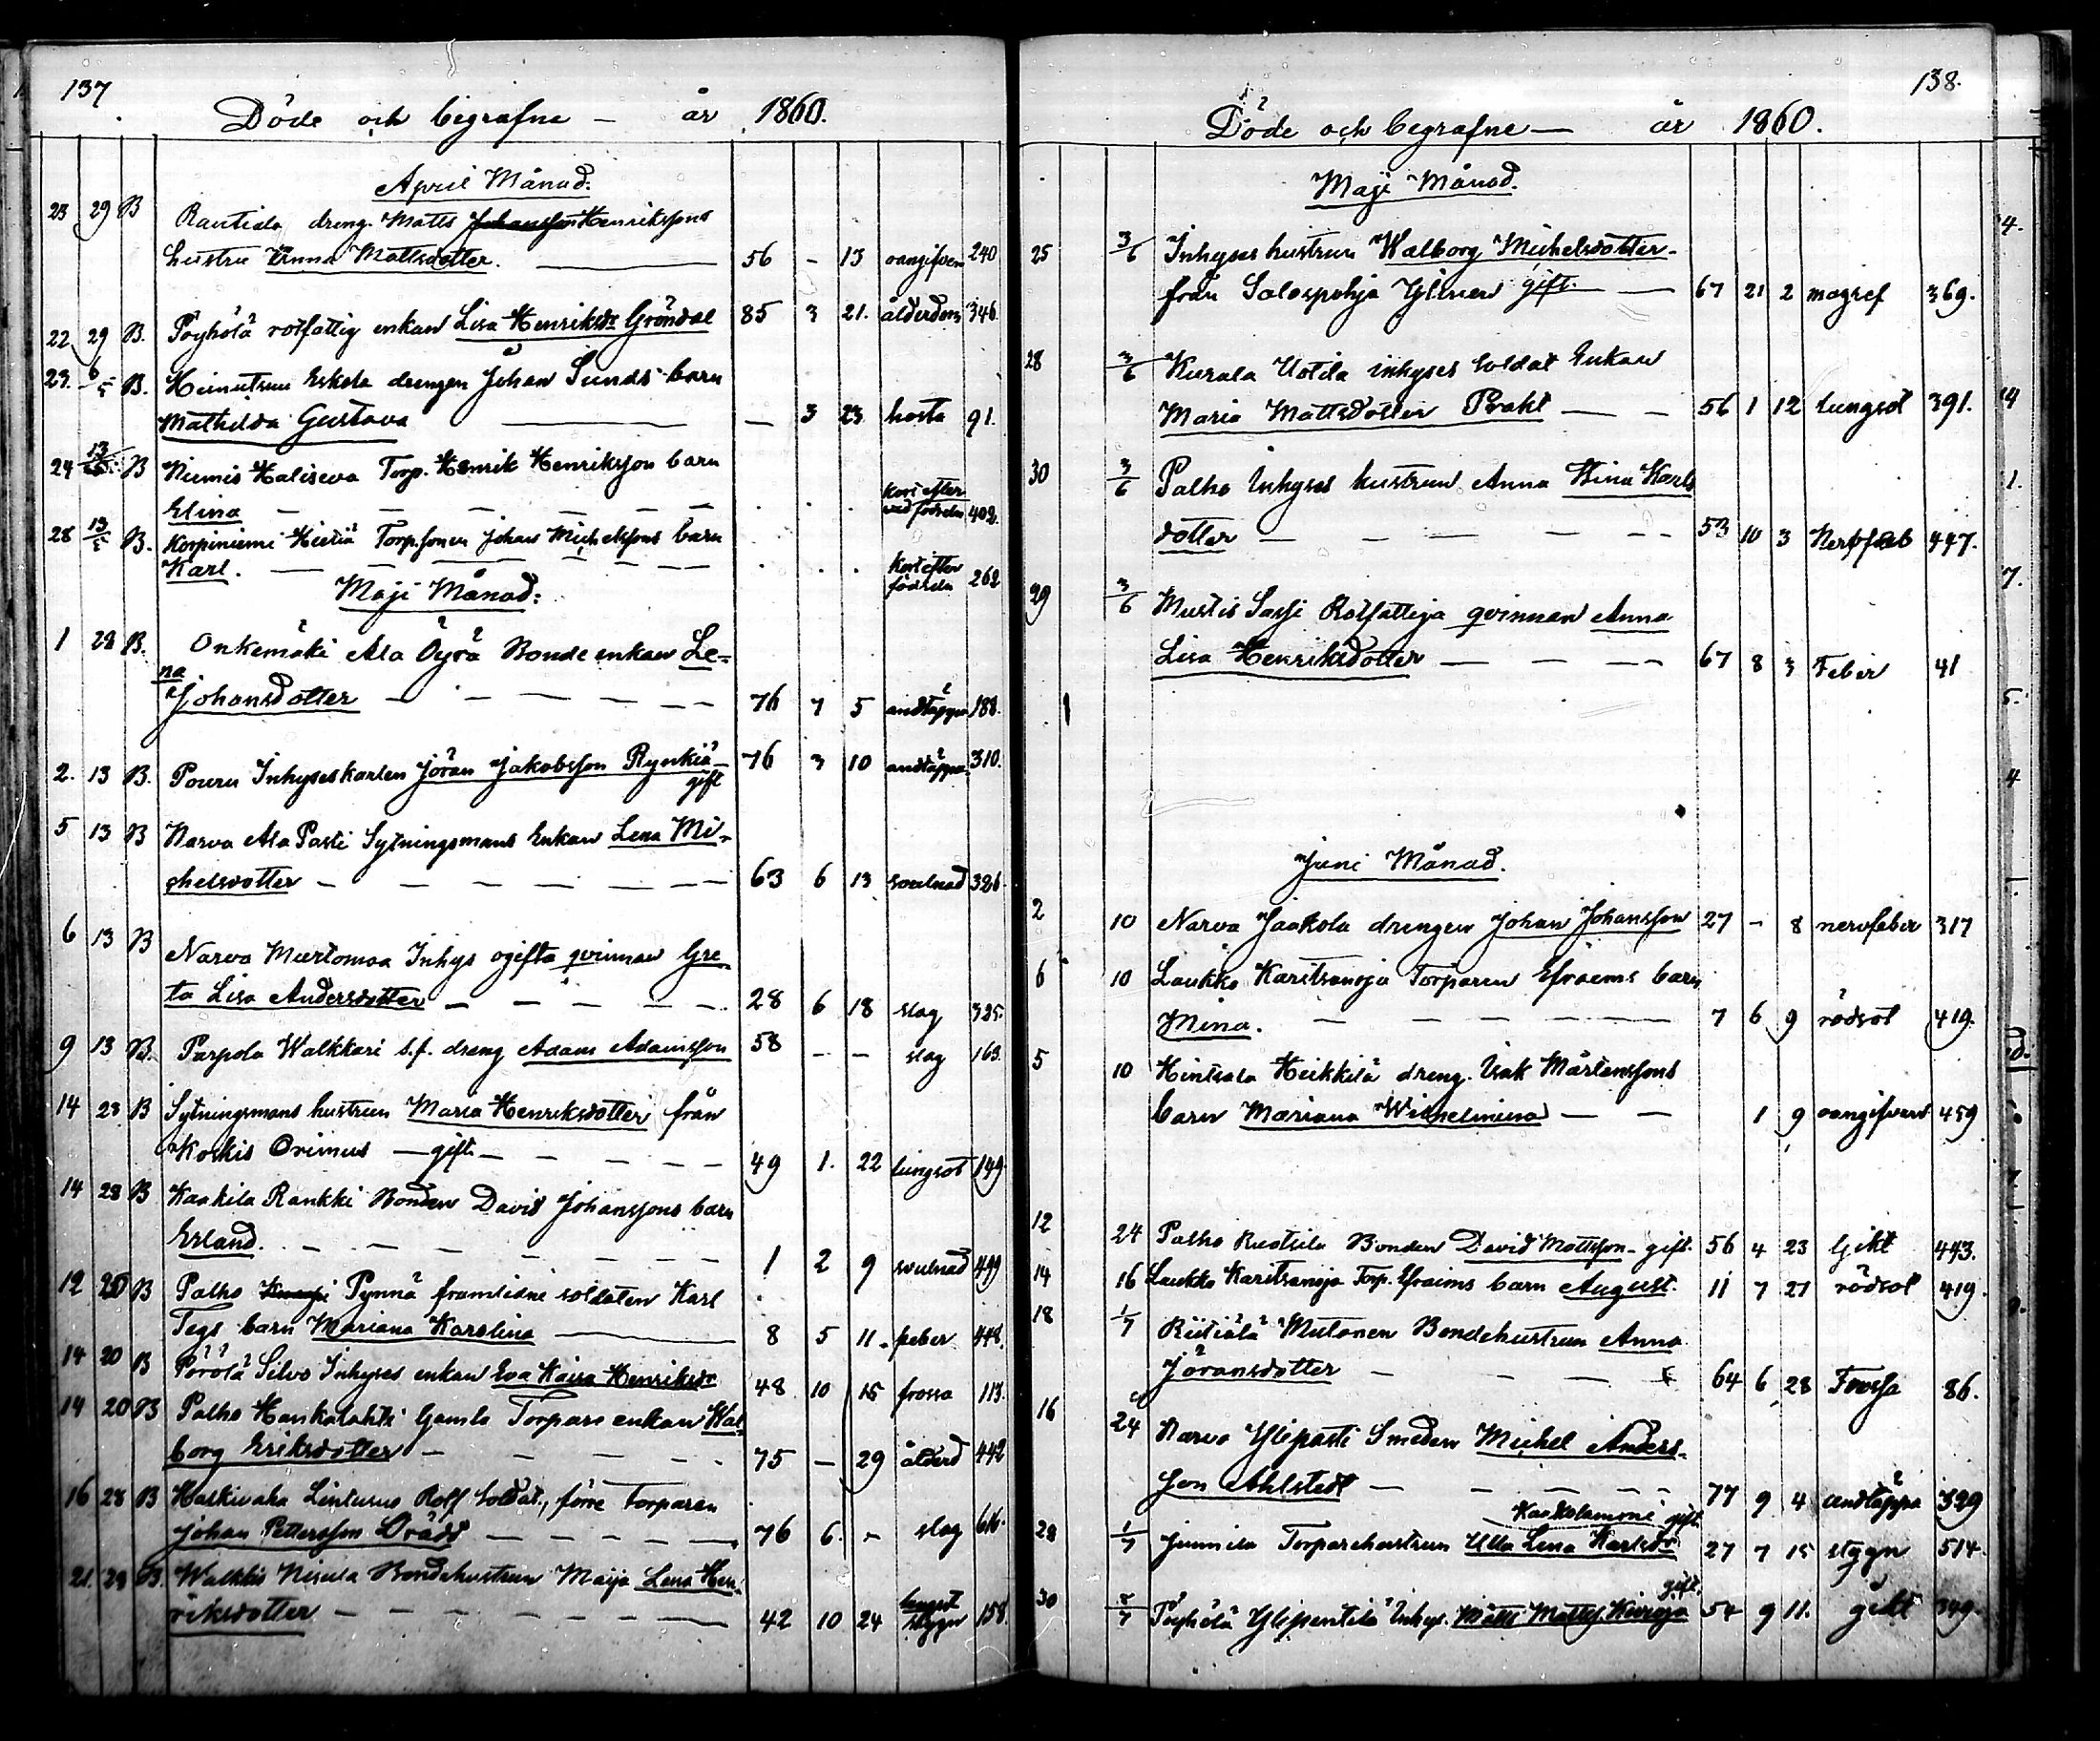 137
Döde och begrafne – år 1860.
April Månad:
23 29 B Rautiala dreng. Matts Johansson Henrikssons
hustru Anna Mattsdotter. — 56 – 13 oangifven 240
22 29 B. Pöyhölä rotfattig enkan Lisa Henriksdr Gröndal 85 3 21. ålderdom 346
23. 6/5 B. Heinutrun Eskola drengen Johan Sunds barn
Mathilda Gustava — — 3 23 hosta 91.
24 13/5 B Niemis Haliseva Torp. Henrik Henriksson barn
Elina — — — — — . . . kort efter nödfödseln 402.
28 13/5 B. Korpiniemi Hietiä Torp.sonen Johan Michelssons barn
Karl. — — — — — . . . kort efter födseln 262
Maji Månad:
1 28 B. Onkemäki Ala Öyrä Bonde enkan Le-
na
Johansdotter — — — — 76 7 5 andtäppa 188.
2. 13 B. Pouru Inhyseskarlen Jöran Jakobsson Rynkiä – gift 76 3 10 andtäppa 310.
5 13 B Narva Ala Pasti Sytningsmans Enkan Lena Mi-
chelsdotter — — — — 63 6 13 svulnad 326.
6 13 B Narva Murtomaa Inhys ogifta qvinnan Gre-
ta Lisa Andersdotter — — — — 28 6 18 slag 325.
9 13 B. Parpola Walkkari s.f. dreng Adam Adamsson 58 – – slag 163.
14 28 B Sytningsmans hustrun Maria Henriksdotter från
Koskis Orimus — gift — — — 49 1. 22 lungsot 149
14 28 B Kaakila Rankki Bonden David Johanssons barn
Erland. — — — — 1 2 9 svulnad 499
12 20 B Palho Pynnä framlidne soldaten Karl
Tegs barn Mariana Karolina — 8 5 11. feber 448.
14 20 B Pörölä Silvo Inhyses enkan Eva Kaisa Henriksdr 48 10 15 frossa 113.
14 20 B Palho Hankalahti Gamla Torpare enkan Wal
borg Eriksdotter — — — 75 – 29 ålderd 442
16 28 B Haskivaha Linturus Rolf Soldat., förre Torparen
Johan Pettersson Brådt — — — 76 6. – slag 616.
21. 29 B. Walkkis Nisula Bondehustrun Maija Lena Hen-
riksdotter — — — — 42 10 24 lungsot stygn 158.
138.
Döde och begrafne — år 1860.
Maji Månad.
25 3/6 Inhyses hustrun Walborg Michelsdotter –
från Salospohja Ylinen gift. — 67 21 2 magref 369.
28 3/6 Kurala Uotila inhyses Soldat Enkan
Maria Mattsdotter Prakt — — 56 1 12 lungsot 391.
30 3/6 Palho Inhyses hustrun Anna Stina Karls
dotter — — — — 53 10 3 Nervfeb 447.
29 3/6 Mustis Sassi Rotfattiga qvinnan Anna
Lisa Henriksdotter — — — 67 8 3 Feber 41
Juni Månad.
2 10 Narva Jaakola drengen Johan Johansson 27 – 8 nervfeber 317
6 10 Laukko Karitsanoja Torparen Efraems barn
Mina. — — — — 7 6 9 rödsot 419.
5 10 Hintsala Heikkilä dreng. Isak Mårtenssons
barn Mariana Wilhelmina — — 1 9 oangifven 459
12 24 Palho Ruotsila Bonden David Mattsson – gift. 56 4 23 Gikt 443.
14 16 Laukko Karitsanoja Torp. Efraims barn August. 11 7 27 rödsot 419.
18 1/7 Riitiälä Mutonen Bondehustrun Anna
Jöransdotter — — — 64 6 28 Frossa 86.
16 24 Narva Ylipasti Smeden Michel Anders-
son Ahlstedt — — — — 77 9 4 andtäppa 329
28 1/7 Junnila Torparehustrun Ulla Lena Karlsdr gift 27 7 15 stygn 514.
30 8/7 Pöyhölä Ylipentilä Inhys. Matts Matts. Kivioja gift. 54 9 11. gikt 349.